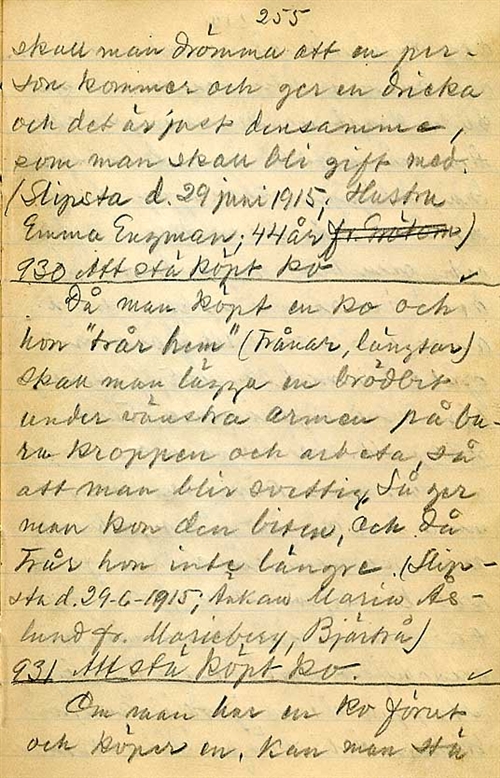 255
skall man drömma att en per-
son kommer och ger en dricka
och det är just densamme,
som man skall bli gift med.
(Slipsta d. 29 juni 1915; Hustru
Emma Enzman; 44 år fr.)
930 Att stä köpt ko
Då man köpt en ko och
hon "trår hem" (trånar, längtar)
skall man lägga en brödbit
under vänstra armen på ba-
ra kroppen och arbeta, så
att man blir svettig, Så ger
man kon den biten, och då
trår hon inte längre. (Slip-
sta d. 29-6-1915; Änkan Maria Ås-
lund fr. Marieberg, Bjärtrå)
931 Att stä köpt ko.
Om man har en ko förut
och köper en, kan man stä